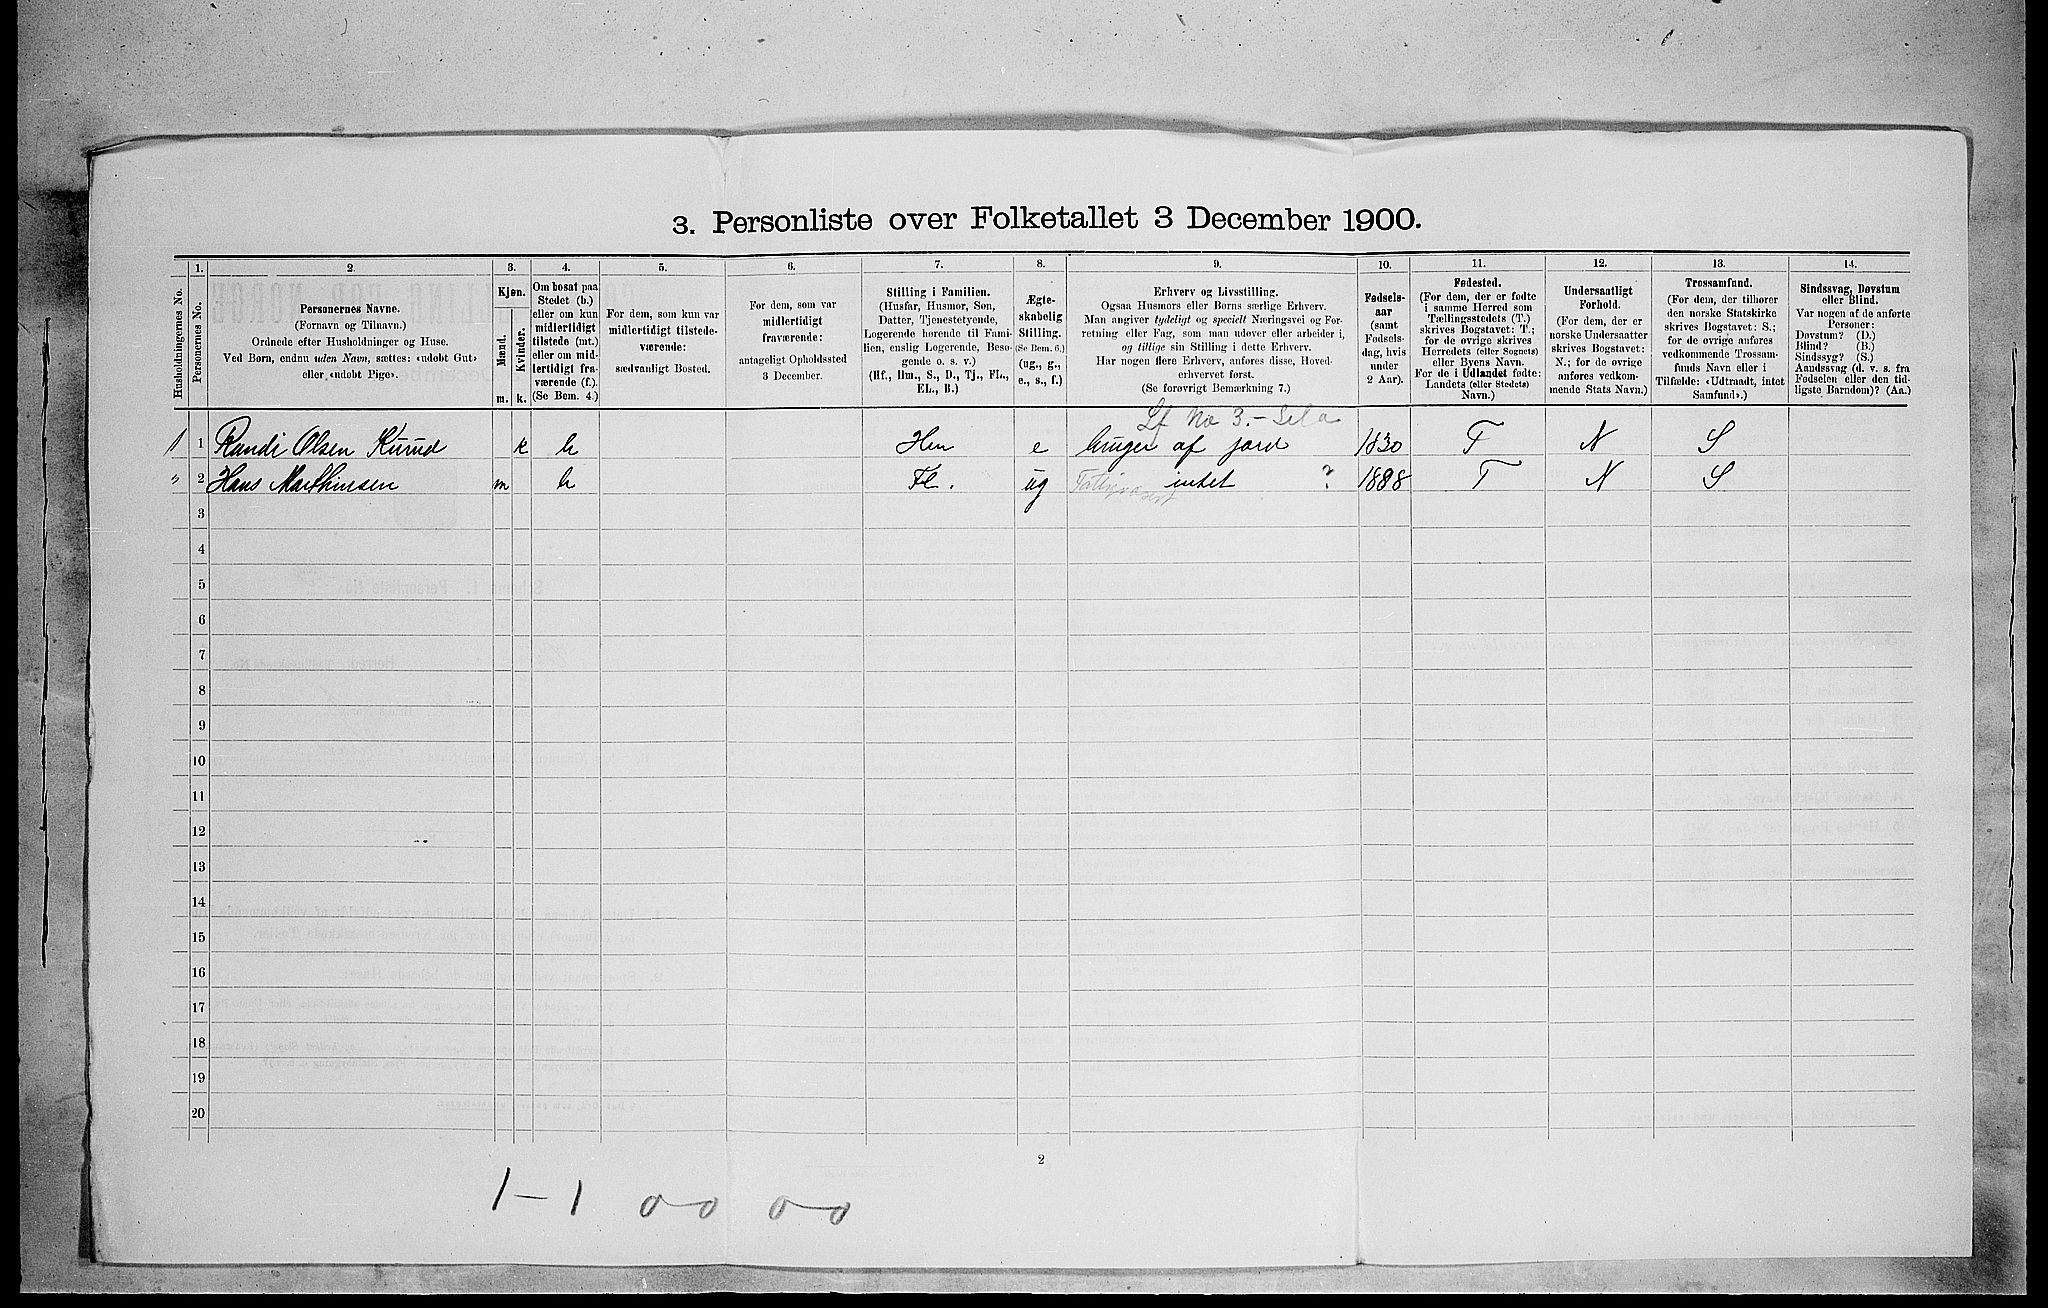 3. Personliste over Folketallet 3 December 1900.
Husholdningernes No.
1.
Personernes No.
2.
Personernes Navne.
(Fornavn og Tilnavn.)
Ordnede efter Husholdninger og Huse.
Ved Børn, endnu uden Navn, sættes: «udøbt Gut»
eller «udøbt Pige».
3.
Kjøn.
Mænd.
Kvinder.
m. k.
4.
Om bosat paa
Stedet (b.)
eller om kun
midlertidigt
tilstede (mt.)
eller om mid-
lertidigt fra-
værende (f.).
(Se Bem. 4.)
5.
For dem, som kun var
midlertidigt tilstede-
værende:
sædvanligt Bosted.
6.
For dem, som var
midlertidigt
fraværende:
antageligt Opholdssted
3 December.
7.
Stilling i Familien.
(Husfar, Husmor, Søn,
Datter, Tjenestetyende,
Logerende hørende til Fami-
lien, enslig Logerende, Besø-
gende o. s. v.)
(Hf., Hm., S., D., Tj., FL.,
EL., B.)
8.
Ægte-
skabelig
Stilling.
(Se Bem. 6.)
(ug., g.,
e., s., f.)
9.
Erhverv og Livsstilling.
Ogsaa Husmors eller Børns særlige Erhverv.
Man angiver tydeligt og specielt Næringsvei og For-
retning eller Fag, som man udøver eller arbeider i,
og tillige sin Stilling i dette Erhverv.
Har nogen flere Erhverv, anføres disse, Hoved-
erhvervet først.
(Se forøvrigt Bemærkning 7.)
10.
Fødsels-
aar
(samt
Fødsels-
dag, hvis
under
2 Aar).
11.
Fødested.
(For dem, der er fødte
i samme Herred som
Tællingsstedets (T.)
skrives Bogstavet: T.;
for de øvrige skrives
Herredets (eller Sognets)
eller Byens Navn.
For de i Udlandet fødte:
Landets (eller Stedets)
Navn.)
12.
Undersaatligt
Forhold.
(For dem, der er
norske Undersaatter
skrives Bogstavet:
N.; for de øvrige
anføres vedkom-
mende Stats Navn.)
13.
Trossamfund.
(For dem, der tilhører
den norske Statskirke
skrives Bogstavet: S.;
for de øvrige anføres
vedkommende Trossam-
funds Navn eller i
Tilfælde: «Udtraadt, intet
Samfund».)
14.
Sindssvag, Døvstum
eller Blind.
Var nogen af de anførte
Personer:
Døvstum? (D.)
Blind? (B.)
Sindssyg? (S.)
Aandssvag (d. v. s. fra
Fødselen eller den tid-
ligste Barndom)? (Aa.)
Lf No 3. -
1 1 Randi Olsen Kurud k b Hm e bruger af jord 1830 T N S
" 2 Hans Marthinsen m b FL. ug intet ? 1888 T N S
3
4
5
6
7
8
9
10
11
12
13
14
15
16
17
18
19
20
2
1-1 0-0 0-0